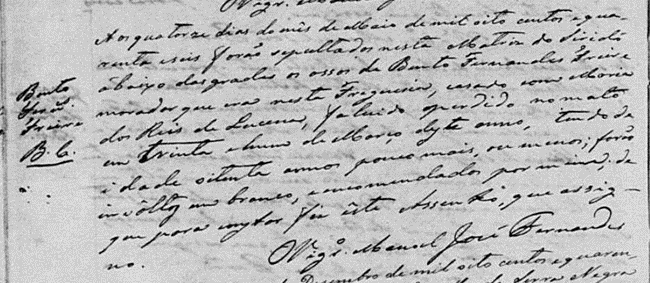 Vigrº. Manoel
Aos quatorze dias do mês de Maio de mil oito centos e qua-
renta e seis forão sepultados nesta Matriz do Siridó
abaixo das grades os ossos de Bento Fernandes Freire
morador que era nesta Freguesia, casado com Maria
dos Reis de Lucena, falecido e perdido no mato
em trinta e hum de Março deste anno, tendo de
idade oitenta annos, pouco mais, ou menos; forão
involtos em branco, e encomendados por mim; de
que para constar fiz este Assento, que assig-
no.
Vigrº. Manoel José Fernandes
Bento
Freire
B. C.
Dezembro de mil oito centos e quaren-
Serra Negra